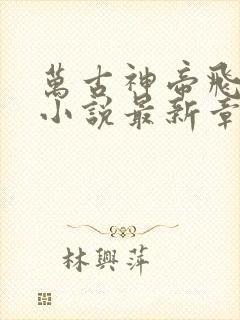 萬古神帝飛
小說最新章
林興萍